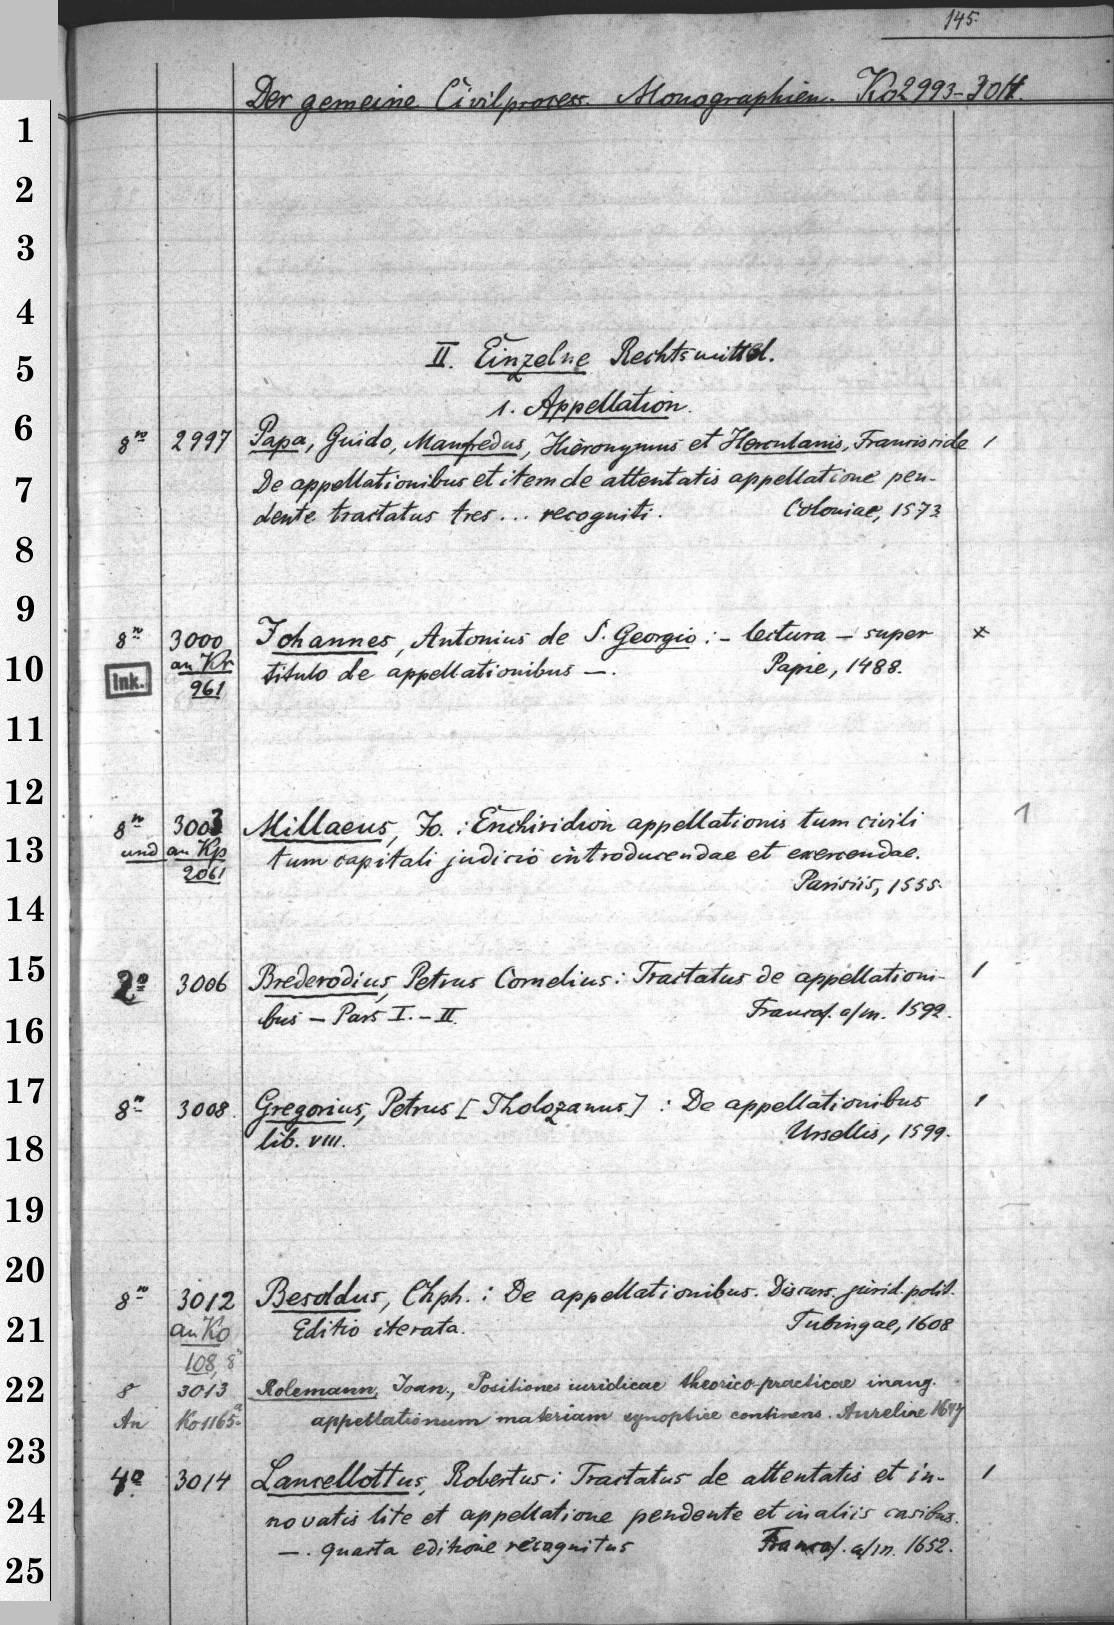 145.
Der gemeine Civilprocess. Monographien. Ko2993-3014.
1
2
3
4
II. Einzelne Rechtsmittel.
5
1. Appellation.
6
8º 2997 Papa, Guido, Manfredus, Hieronymus et Herculanis, Franciscide /
7 De appellationibus et item de attentatis appellatione pen-
dente tractatus tres... recogniti. Coloniae, 1573
8
9
8º 3000 Johannes, Antonius de S. Georgio: - lectura - super x
10 Ink. an Kr titulo de appellationibus -. Papie, 1488.
961
11
12
8º 3003 Millaeus, Jo.: Enchiridion appellationis tum civili 1
13 und an Kp tum capitali judicio introducendae et exercendae.
2061 Parisiis, 1555.
14
15
2º 3006 Brederodius, Petrus Cornelius: Tractatus de appellationi- /
16 bus - Pars I. - II. Francof. a/m. 1592.
17
8º 3008. Gregorius, Petrus [Tholozanus]: De appellationibus /
18 lib. VIII. Ursellis, 1599.
19
20
8º 3012 Besoldus, Chph.: De appellationibus. Discurs. jurid. polit.
21 an Ko Editio iterata. Tubingae, 1608
108, 8º
22 8 3013 Rolemann, Joan., Positiones iuridicae theorico-practicae inaug.
An Ko1165a appellationum materiam synoptice continens. Aureliae 1647
23
4º 3014 Lancellottus, Robertus: Tractatus de attentatis et in- /
24 novatis lite et appellatione pendente et in aliis casibus.
-. quarta editione recognitus Francof. a/m. 1652.
25